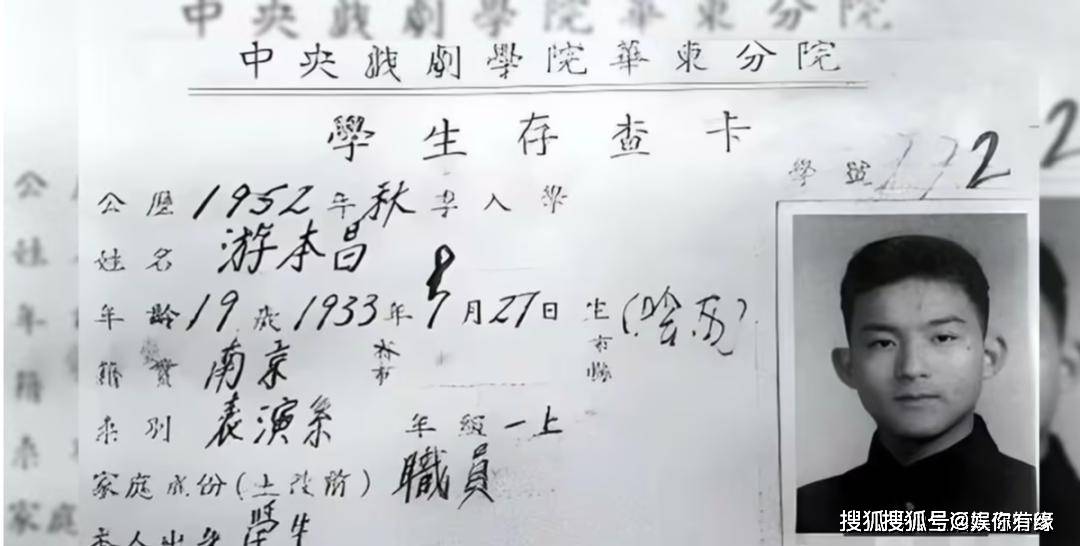 中央戲劇學院華東分院
中央戲劇學院華東分院
學生存查卡
學號 172
公歷1952年秋季入學
姓名 游本昌
年齡19歲1933年8月27日生(陰历)
籍貫 南京 市
市縣
系別 表演系 年級 一上
家庭成份(土改前) 職員
本人出身 學生
搜狐搜狐号@娱你若缘